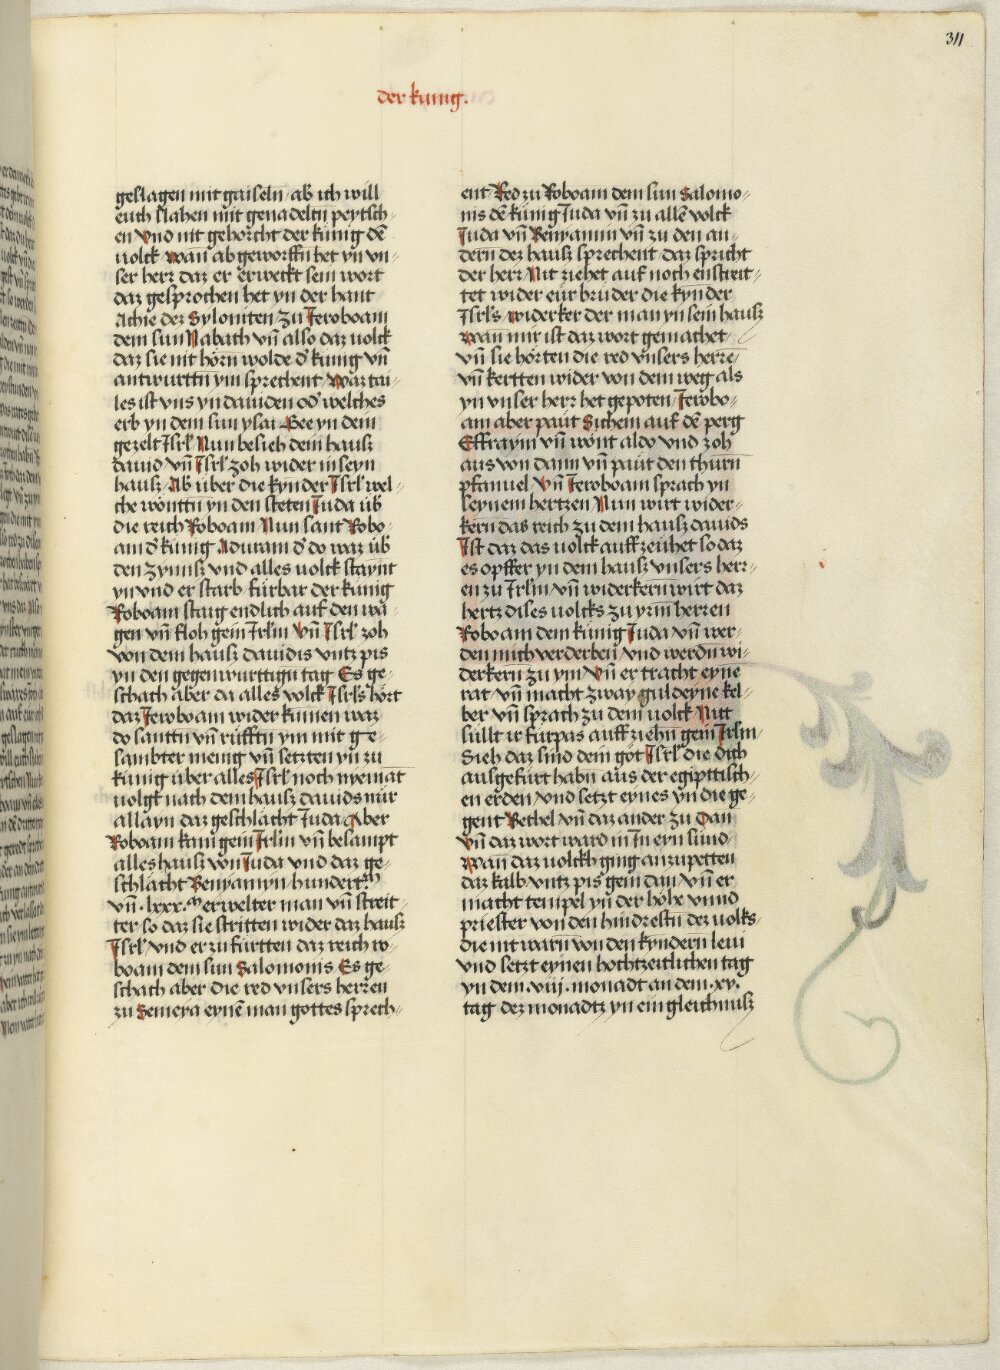 311
der kunig.
geslagen mit gaiseln ab ich will
euch slahen mit genadeltn peytsch⸗
en Vnd nit gehorcht der kunig dē
uolck Wañ ab geworffn het yn vn⸗
ser herr daz er erweckt sein wort
daz gesprochen het yn der hant
Achie dez Syloniten zu Jeroboam
dem sun Nabath vñ also daz uolck
daz sie nit hörn wolde d' kunig vñ
antwurttn ym sprechent Waz tai⸗
les ist vns yn dauiden od' welches
erb yn dem sun ysai Gee yn dein
gezelt Isrl' Nun besieh dein hausz
dauid vñ Isrl' zoh wider in seyn
hausz Ab über die kynder Isrl' wel⸗
che wontn yn den steten Juda üb'
die reich Roboam Nun sant Robo⸗
am d' kunig Aduram d' do waz üb'
den zynnsz vnd alles uolck staynt
yn vnd er starb fürbar der kunig
Roboam staig endlich auf den wa⸗
gen vñ floh gein Irlm Vñ Isrl' zoh
von dem hausz dauidis vntz pis
yn den gegenwurttign tag Es ge⸗
schach aber da alles volck Isrl's hört
daz Jeroboam wider kumen waz
do santtn vñ rufftn ym mit ge⸗
sambter menig vñ setzten yn zu
kunig über alles Isrl' noch nyemāt
uolgt nach dem hausz dauids nür
allayn daz geschlächt Juda Aber
Roboam kam gein Irlm vñ besampt
alles hausz von Juda vnd daz ge⸗
schlächt Benjamyn hundert m
vñ .lxxx. m erwelter man vñ streit⸗
ter so daz sie stritten wider daz hausz
Isrl' vnd er zu fürtten daz reich ro⸗
boam dem sun Salomonis Es ge⸗
schach aber die red vnsers herren
zu Semeya eynē man gottes sprech⸗
ent Red zu Roboam dem sun Salomo⸗
nis dē kunig Juda vñ zu allē volck
Juda vñ Benyamin vñ zu den an⸗
dern dez hausz sprechent daz spricht
der herr Nit ziehet auf noch enstreit⸗
tet wider eur brüder die kynder
Isrl's widerker der man yn sein hausz
wan mir ist daz wort gemachet
vñ sie hörten die red vnsers herrē
vñ kertten wider von dem weg als
yn vnser herr het gepoten Jerobo⸗
am aber paut Sichem auf dē perg
Effraym vñ wont aldo vnd zoh
aus von dann vñ paut den thurn
pfanuel Vñ Jeroboam sprach yn
seynem hertzen Nun wirt wider⸗
kern das reich zu dem hausz dauids
Ist daz das uolck auff zeuhet so daz
es opffer yn dem hausz vnsers herr⸗
en zu Irlm vñ widerkern wirt daz
hertz dises uolcks zu yrm herren
Roboam dem kunig Juda vñ wer⸗
den mich verderben vnd werdn wi⸗
derkern zu ym Vñ er tracht eyne
rat vñ macht zway guldeyne kel⸗
ber vñ sprach zu dem uolck Nitt
süllt ir fürpas auff ziehn gein Irlm
Sieh daz sind dein göt Isrl' die dich
ausgefürt habn aus der egipttisch⸗
en erden vnd setzt eynes yn die ge⸗
gent Bethel vñ daz ander zu Dan
Vñ daz wort ward in Jn eyn sünd
Wañ daz uolckh ging anzupetten
daz kalb vntz pis gein dan vñ er
macht tempel yn der höhe vnnd
priester von den hindrestn dez uolks
die nit warn von den kyndern leui
vnd setzt eynen hochtzeitlichen tag
yn dem .viij. monadt an dem .xv.
tag dez monadtz yn ein gleichnusz